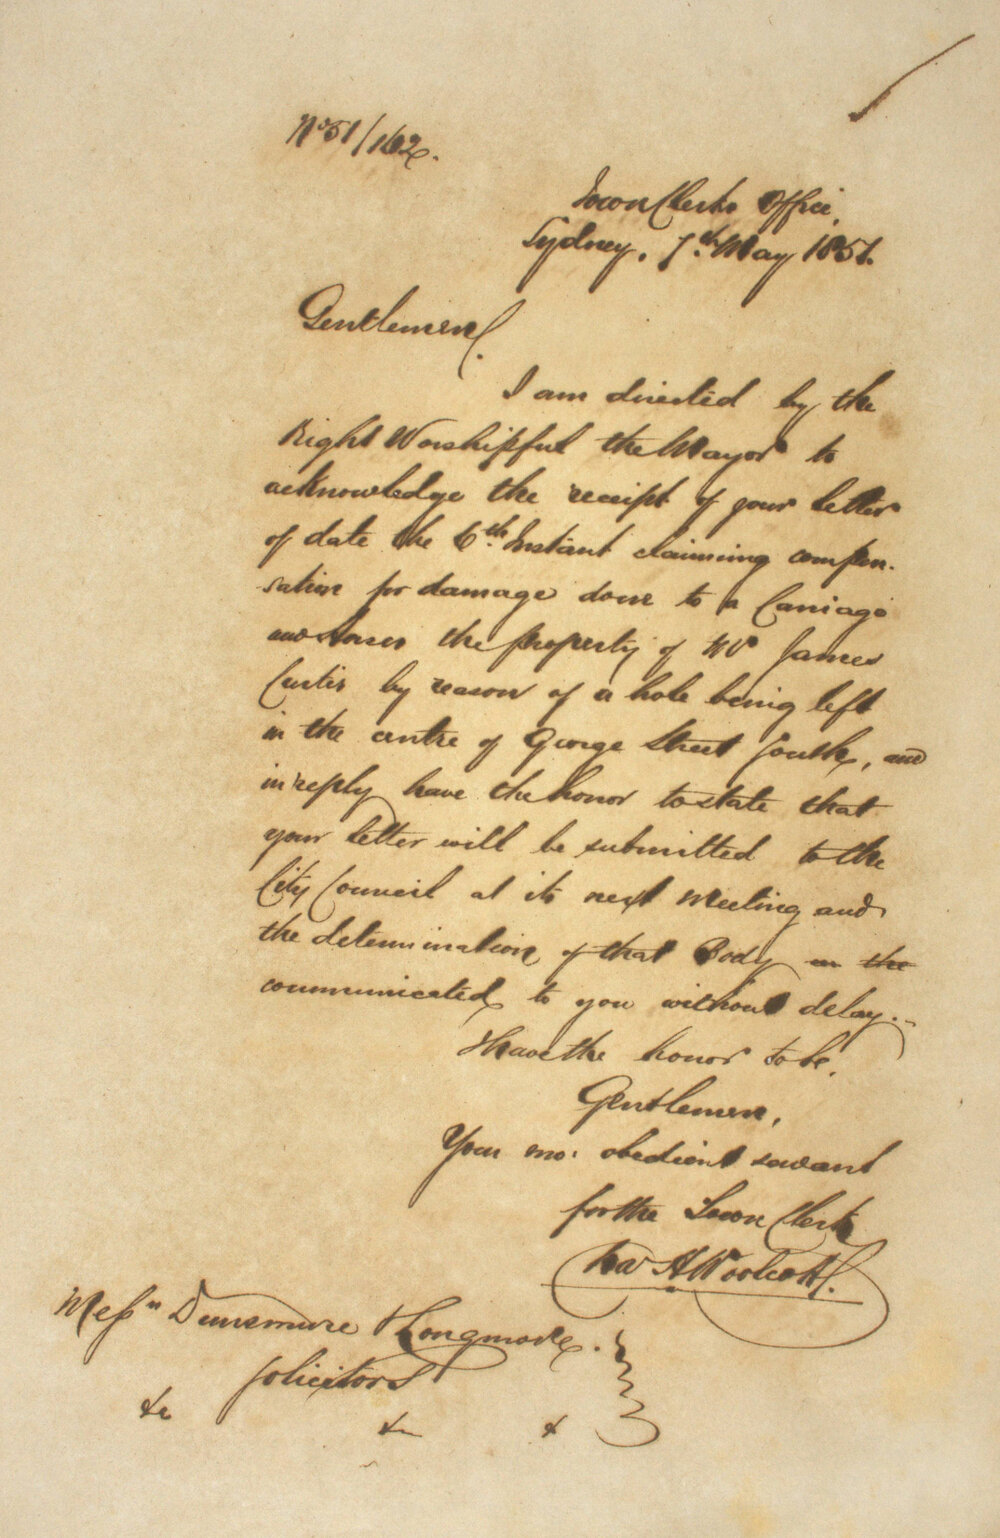 No 51/162.
Town Clerks Office,
Sydney, 7th May 1851.
Gentlemen,
I am directed by the
Right Worshipful the Mayor to
acknowledge the receipt of your letter
of date the 6th Instant claiming compen-
sation for damage done to a Carriage
and horses the property of Mr James
Curtis by reason of a hole being left
in the centre of George Street South, and
in reply have the honor to state that
your letter will be submitted to the
City Council at its next Meeting and
the determination of that Body on the
communicated to you without delay.-
I have the honor to be,
Gentlemen,
Your mo: obedient servant
for the Town Clerk
Chas H Woolcott.
Messrs Dunsmure & Longmore.
Solicitors
&c &c &